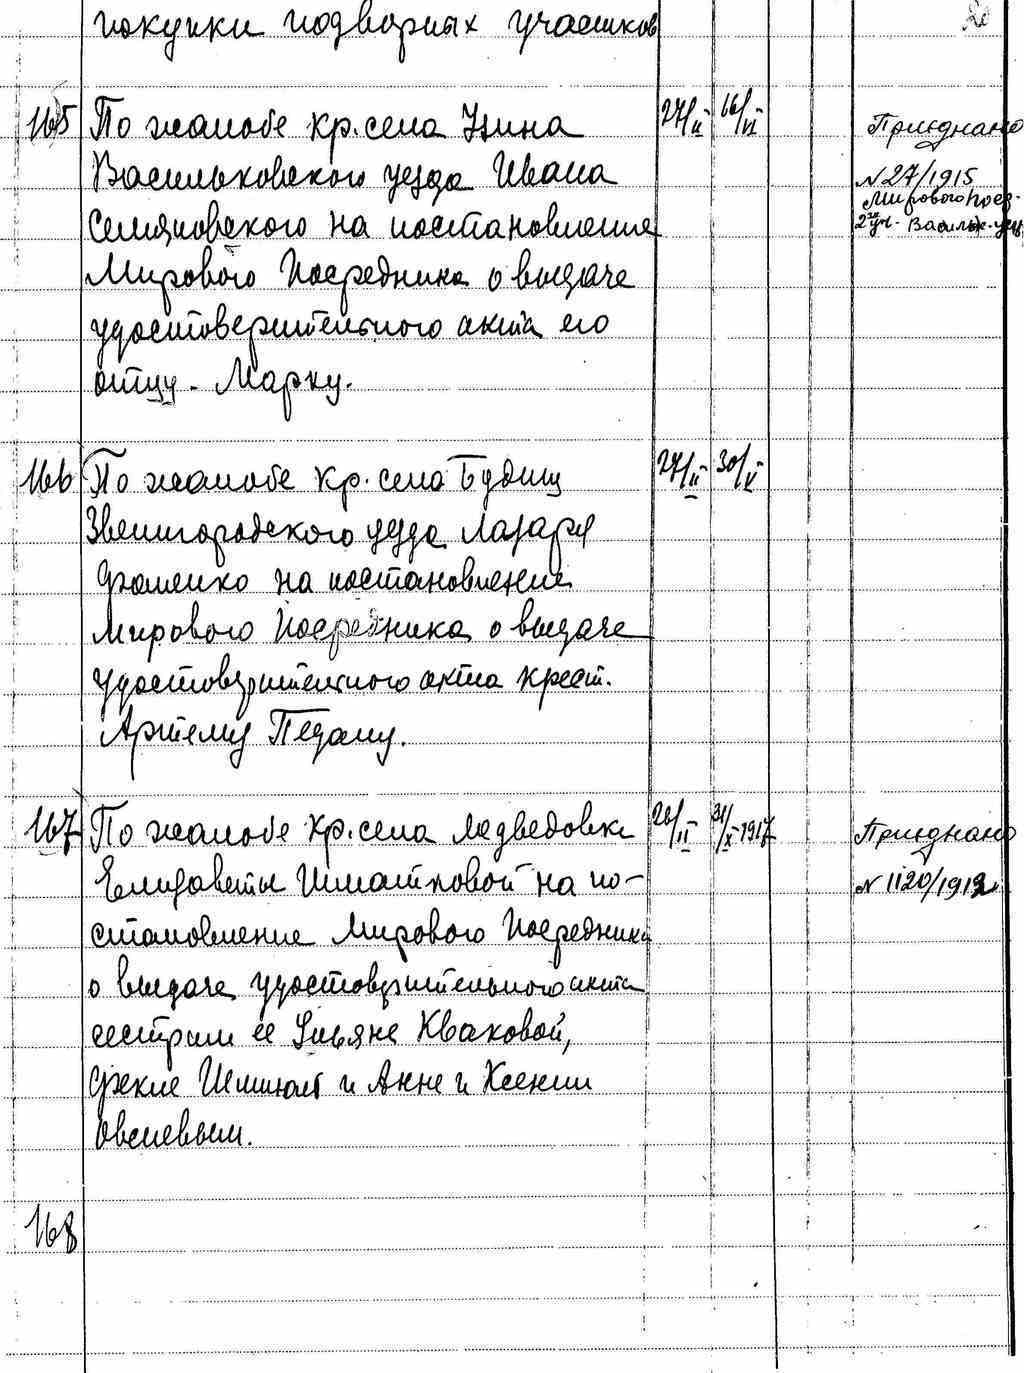 покупки подворных участков
20
165 По жалобе кр. села Узина 27/II 16/VI Приєднано
Васильковского уезда Ивана N 27/1915
Мирового поср.
Семяновского на постановление 2го уч. Васильк. уезд
Мирового Посредника о выдаче
удостоверительного акта его
отцу - Марку.
166 По жалобе кр. села Будищ 27/II 30/V
Звенигородского уезда Лазаря
на постановление
Мирового Посредника о выдаче
удостоверительного акта крест.
Артему Педану.
167 По жалобе кр. села Медведовки 26/II 31/X 1917 Приєднано
Елизаветы Шматковой на по- N 1120/1912
становление Мирового Посредника
о выдаче удостоверительного акта
сестрам ее Ульяне Кваковой,
и Анне и Ксении
Овсиевым.
168